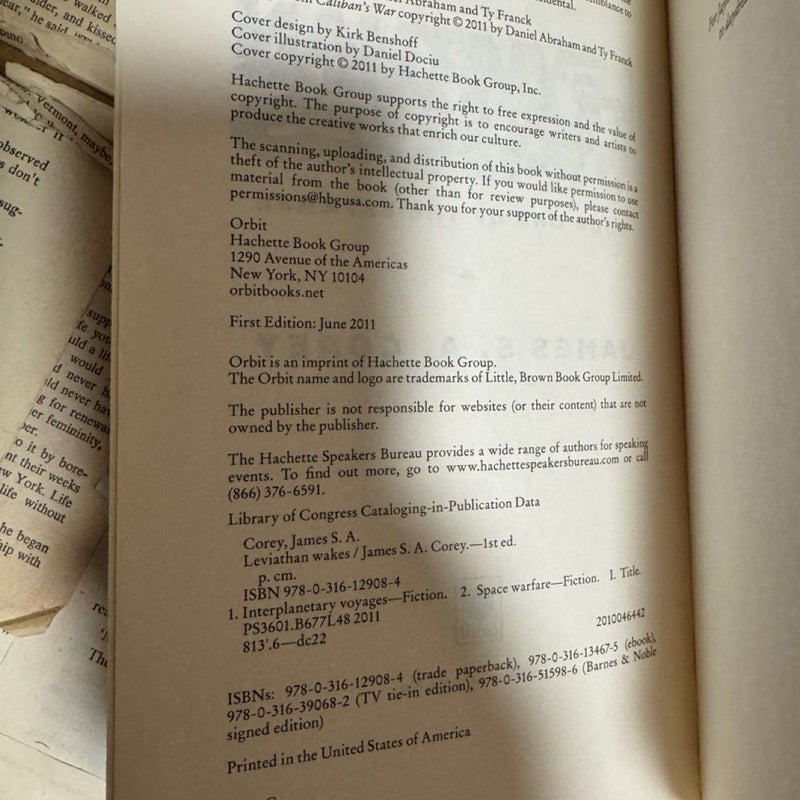 walked
older, and kissed
ear," he said
Vermont, maybe,
observed
s don't
sug-
supp
fe you
uld a lif
would
d never h
ld never hav
g for renewa
er femininity,
per.
o it by bore-
nt their weeks
w York. Life
life without
he began
hip with
The
semblance to
dental.
Abraham and Ty Franck
Caliban's War copyright © 2011 by Daniel Abraham and Ty Franck
Cover design by Kirk Benshoff
Cover illustration by Daniel Dociu
Cover copyright © 2011 by Hachette Book Group, Inc.
Hachette Book Group supports the right to free expression and the value of
copyright. The purpose of copyright is to encourage writers and artists to
produce the creative works that enrich our culture.
The scanning, uploading, and distribution of this book without permission is a
theft of the author's intellectual property. If you would like permission to use
material from the book (other than for review purposes), please contact
permissions@hbgusa.com. Thank you for your support of the author's rights.
Orbit
Hachette Book Group
1290 Avenue of the Americas
New York, NY 10104
orbitbooks.net
First Edition: June 2011
Orbit is an imprint of Hachette Book Group.
The Orbit name and logo are trademarks of Little, Brown Book Group Limited.
The publisher is not responsible for websites (or their content) that are not
owned by the publisher.
The Hachette Speakers Bureau provides a wide range of authors for speaking
events. To find out more, go to www.hachettespeakersbureau.com or call
(866) 376-6591.
Library of Congress Cataloging-in-Publication Data
Corey, James S. A.
Leviathan wakes / James S. A. Corey.—1st ed.
p. cm.
ISBN 978-0-316-12908-4
1. Interplanetary voyages—Fiction. 2. Space warfare—Fiction. I. Title.
PS3601.B677L48 2011
813'.6—dc22
2010046442
ISBNs: 978-0-316-12908-4 (trade paperback), 978-0-316-13467-5 (ebook),
978-0-316-39068-2 (TV tie-in edition), 978-0-316-51598-6 (Barnes & Noble
signed edition)
Printed in the United States of America